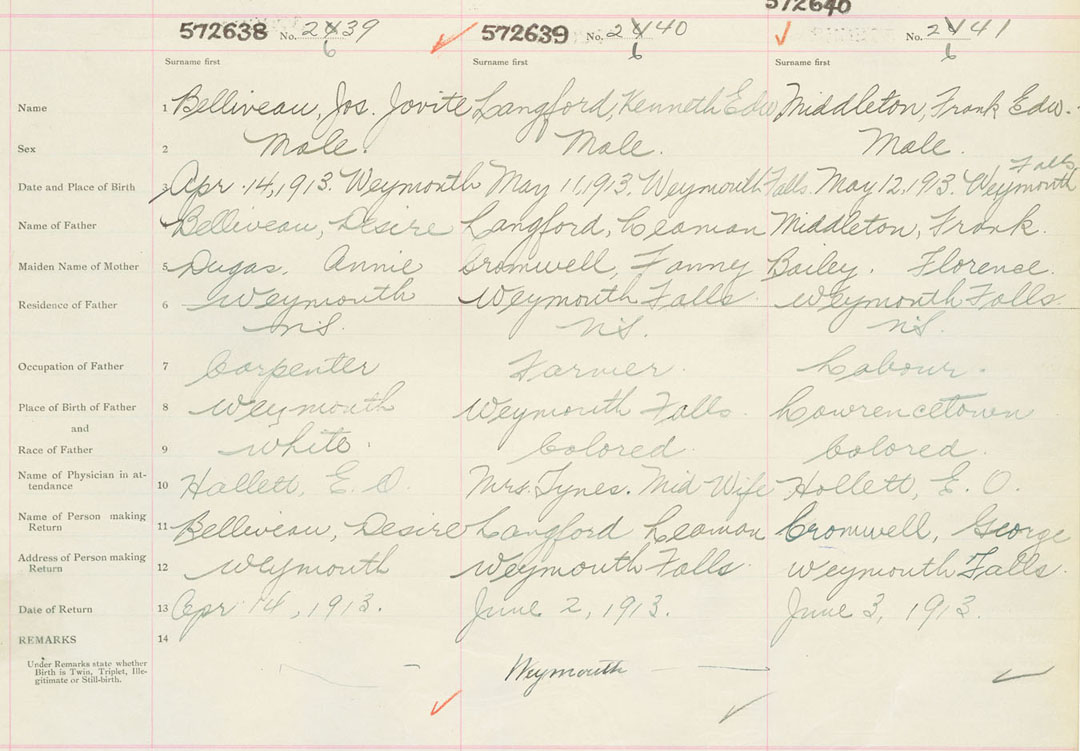 572640
572638 No. 2439 6 572639 No. 2440 6 No. 2441 6
Surname first Surname first Surname first
Name 1 Belliveau, Jos. Jovite Langford, Kenneth Edw Middleton, Frank Edw.
Sex 2 Male. Male. Male.
Falls
Date and Place of Birth 3 Apr. 14, 1913. Weymouth May 11, 1913. Weymouth Falls. May 12, 1913. Weymouth
Name of Father 4 Belliveau, Desire Langford, Leaman Middleton, Frank.
Maiden Name of Mother 5 Dugas, Annie Cromwell, Fanny Bailey. Florence.
Residence of Father 6 Weymouth Weymouth Falls. Weymouth Falls.
N.S. N.S. N.S.
Occupation of Father 7 Carpenter Farmer. Labour.
Place of Birth of Father 8 Weymouth Weymouth Falls. Lawrencetown
and
Race of Father 9 White. Colored. Colored.
Name of Physician in at-
tendance 10 Hallett, E. O. Mrs. Tynes. Mid Wife Hollett, E. O.
Name of Person making
Return 11 Belliveau, Desire Langford Leaman Cromwell, George
Address of Person making
Return 12 Weymouth Weymouth Falls. Weymouth Falls.
Date of Return 13 Apr 14, 1913. June 2, 1913. June 3, 1913.
REMARKS 14
Under Remarks state whether
Birth is Twin, Triplet, Ille-
gitimate or Still-birth.
Weymouth